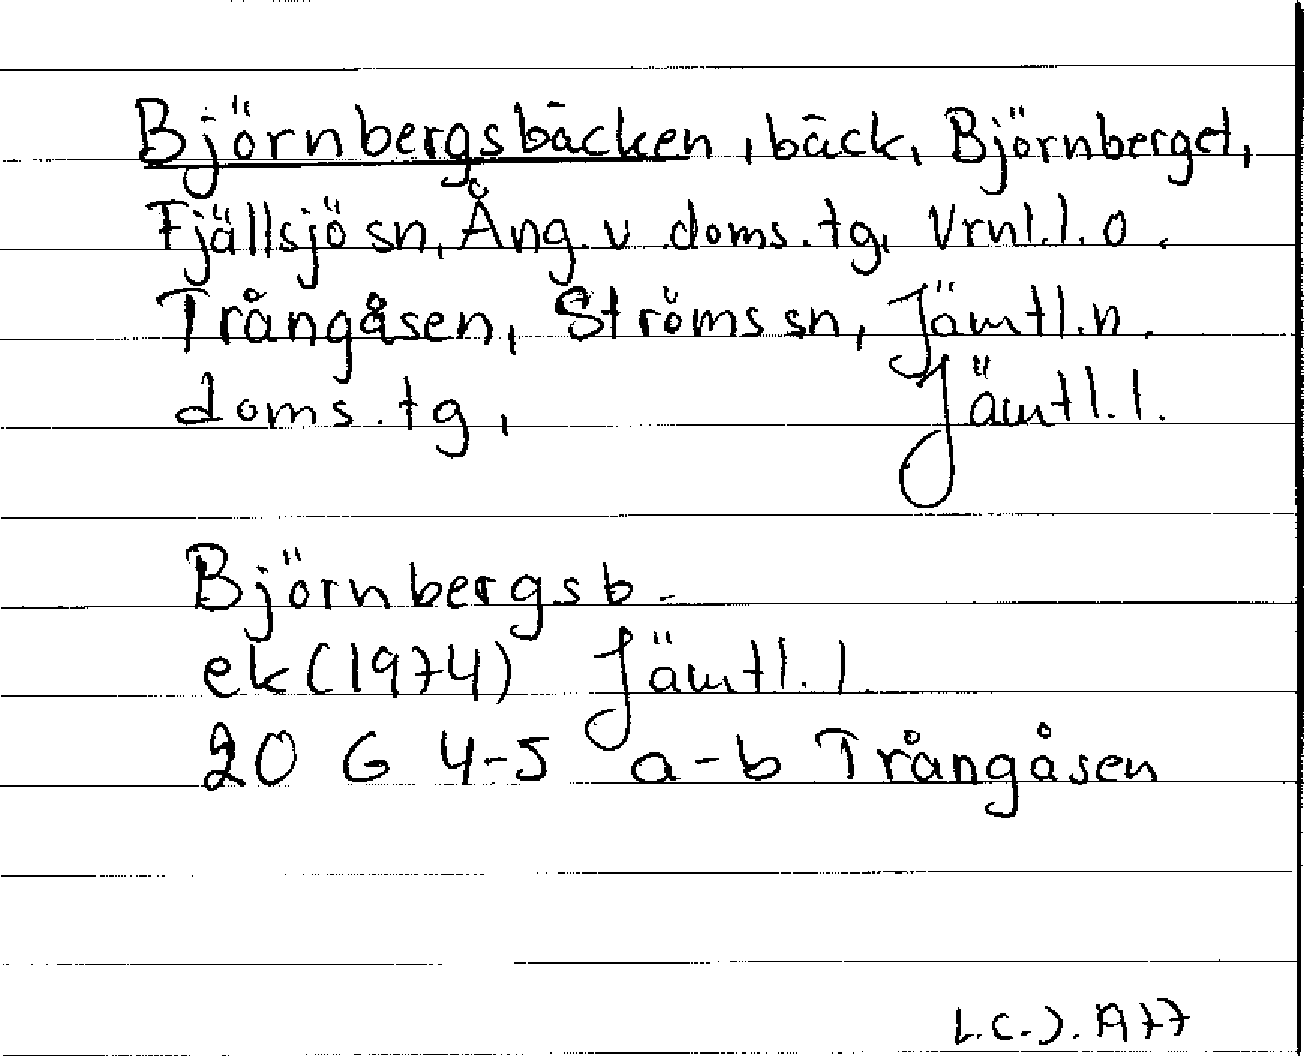 Björnbergsbäcken, bäck, Björnberget,
Fjällsjö sn, Ång. v doms. tg, Vrnl. l. o.
Trångåsen, Ströms sn, Jämtl. n.
doms. tg, Jämtl. l.
Björnbergsb.
ek (1974) Jämtl. l.
20 G 4-5 a-b Trångåsen
L.C.J. 1977